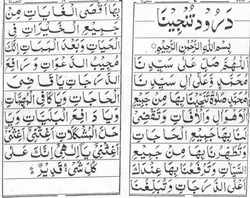 درود تنجینا
بِسْمِ اللهِ الرَّحْمٰنِ الرَّحِيْمِ
اَللّٰهُمَّ صَلِّ عَلٰى سَيِّدِنَا
مُحَمَّدٍ وَّعَلٰى اٰلِ سَيِّدِنَا
مُحَمَّدٍ صَلٰوةً تُنْجِيْنَا بِهَا مِنْ جَمِيْعِ
الْاَهْوَالِ وَالْاٰفَاتِ وَتَقْضِيْ
لَنَا بِهَا جَمِيْعَ الْحَاجَاتِ
وَتُطَهِّرُنَا بِهَا مِنْ جَمِيْعِ
السَّيِّئَاتِ وَتَرْفَعُنَا بِهَا عِنْدَكَ
اَعْلَى الدَّرَجَاتِ وَتُبَلِّغُنَا
بِهَا اَقْصَى الْغَايَاتِ مِنْ
جَمِيْعِ الْخَيْرَاتِ فِي
الْحَيَاتِ وَبَعْدَ الْمَمَاتِ اِنَّكَ
مُجِيْبُ الدَّعْوَاتِ وَرَافِعُ
الدَّرَجَاتِ وَيَا قَاضِيَ
الْحَاجَاتِ وَيَا كَافِيَ الْمُهِمَّاتِ
وَيَا دَافِعَ الْبَلِيَّاتِ وَيَا
حَلَّ الْمُشْكِلَاتِ اَغِثْنِيْ
اَغِثْنِيْ يَا اِلٰهِيْ اِنَّكَ عَلٰى
كُلِّ شَيْءٍ قَدِيْرٌ